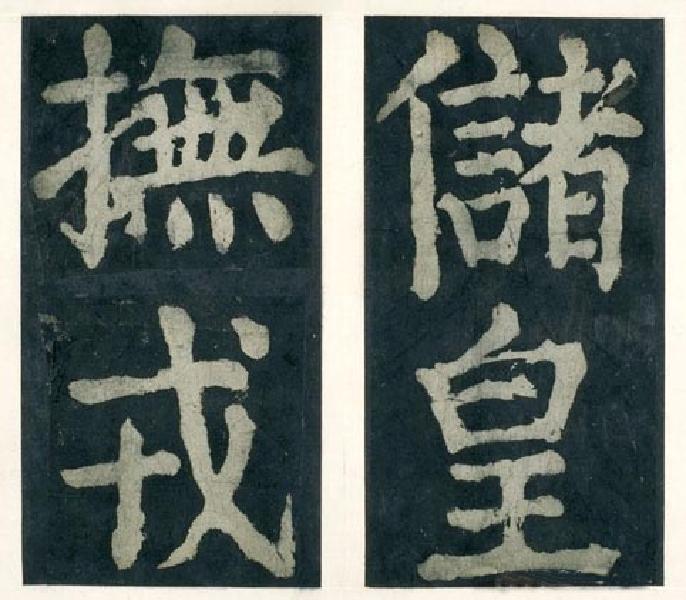 儲皇
撫戎